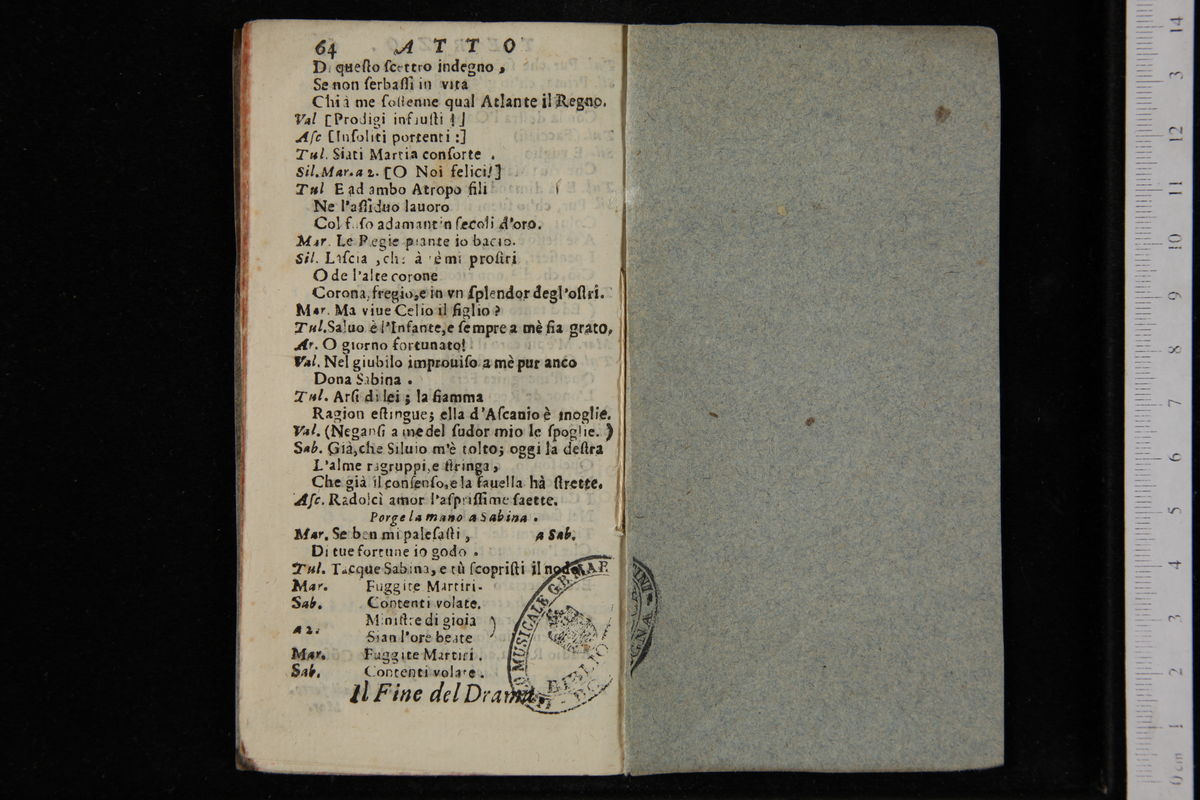 64 ATTO
Di queſto ſcettro indegno,
Se non ſerbaſſi in vita
Chi à me ſoſtenne qual Atlante il Regno.
Val [Prodigi infauſti !]
Aſc [Inſoliti portenti :]
Tul. Siati Martia conſorte .
Sil. Mar. a 2. [O Noi felici!]
Tul E ad ambo Atropo fili
Ne l'aſſiduo lauoro
Col fuſo adamantin ſecoli d'oro.
Mar. Le Regie piante io bacio.
Sil. Laſcia , ch' à mi proſtri
O de l'alte corone
Corona, fregio, e in vn ſplendor degl'oſtri.
Mar. Ma viue Celio il figlio ?
Tul. Saluo è l'Infante, e ſempre a mè fia grato.
Ar. O giorno fortunato!
Val. Nel giubilo improuiſo a mè pur anco
Dona Sabina .
Tul. Arſi di lei ; la fiamma
Ragion eſtingue; ella d'Aſcanio è moglie.
Val. (Neganſi a me del ſudor mio le ſpoglie. )
Sab. Già, che Siluio m'è tolto; oggi la deſtra
L'alme ragruppi, e ſtringa,
Che già il conſenſo, e la fauella hà ſtrette.
Aſc. Radolcì amor l'aſpriſſime ſaette.
Porge la mano a Sabina .
Mar. Se ben mi paleſaſti , a Sab.
Di tue fortune io godo .
Tul. Tacque Sabina, e tù ſcopriſti il nodo.
Mar. Fuggite Martiri.
Sab. Contenti volate.
Miniſtre di gioia )
a 2. Sian l'ore beate
Mar. Fuggite Martiri .
Sab. Contenti volate .
Il Fine del Drama.
MUSICALE
BIBLIO
0 cm 1 2 3 4 5 6 7 8 9 10 11 12 13 14